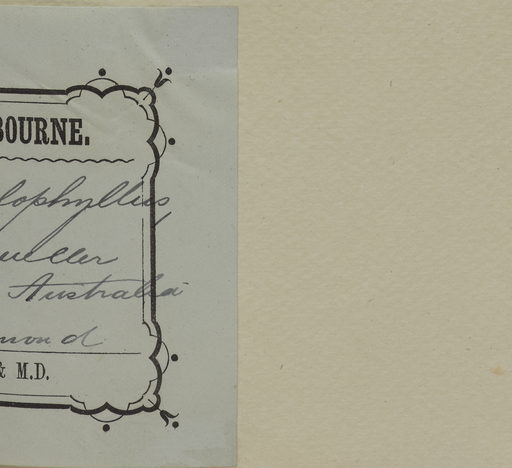 BOURNE.
lophyllus,
ueller
Australia
mond
& M.D.